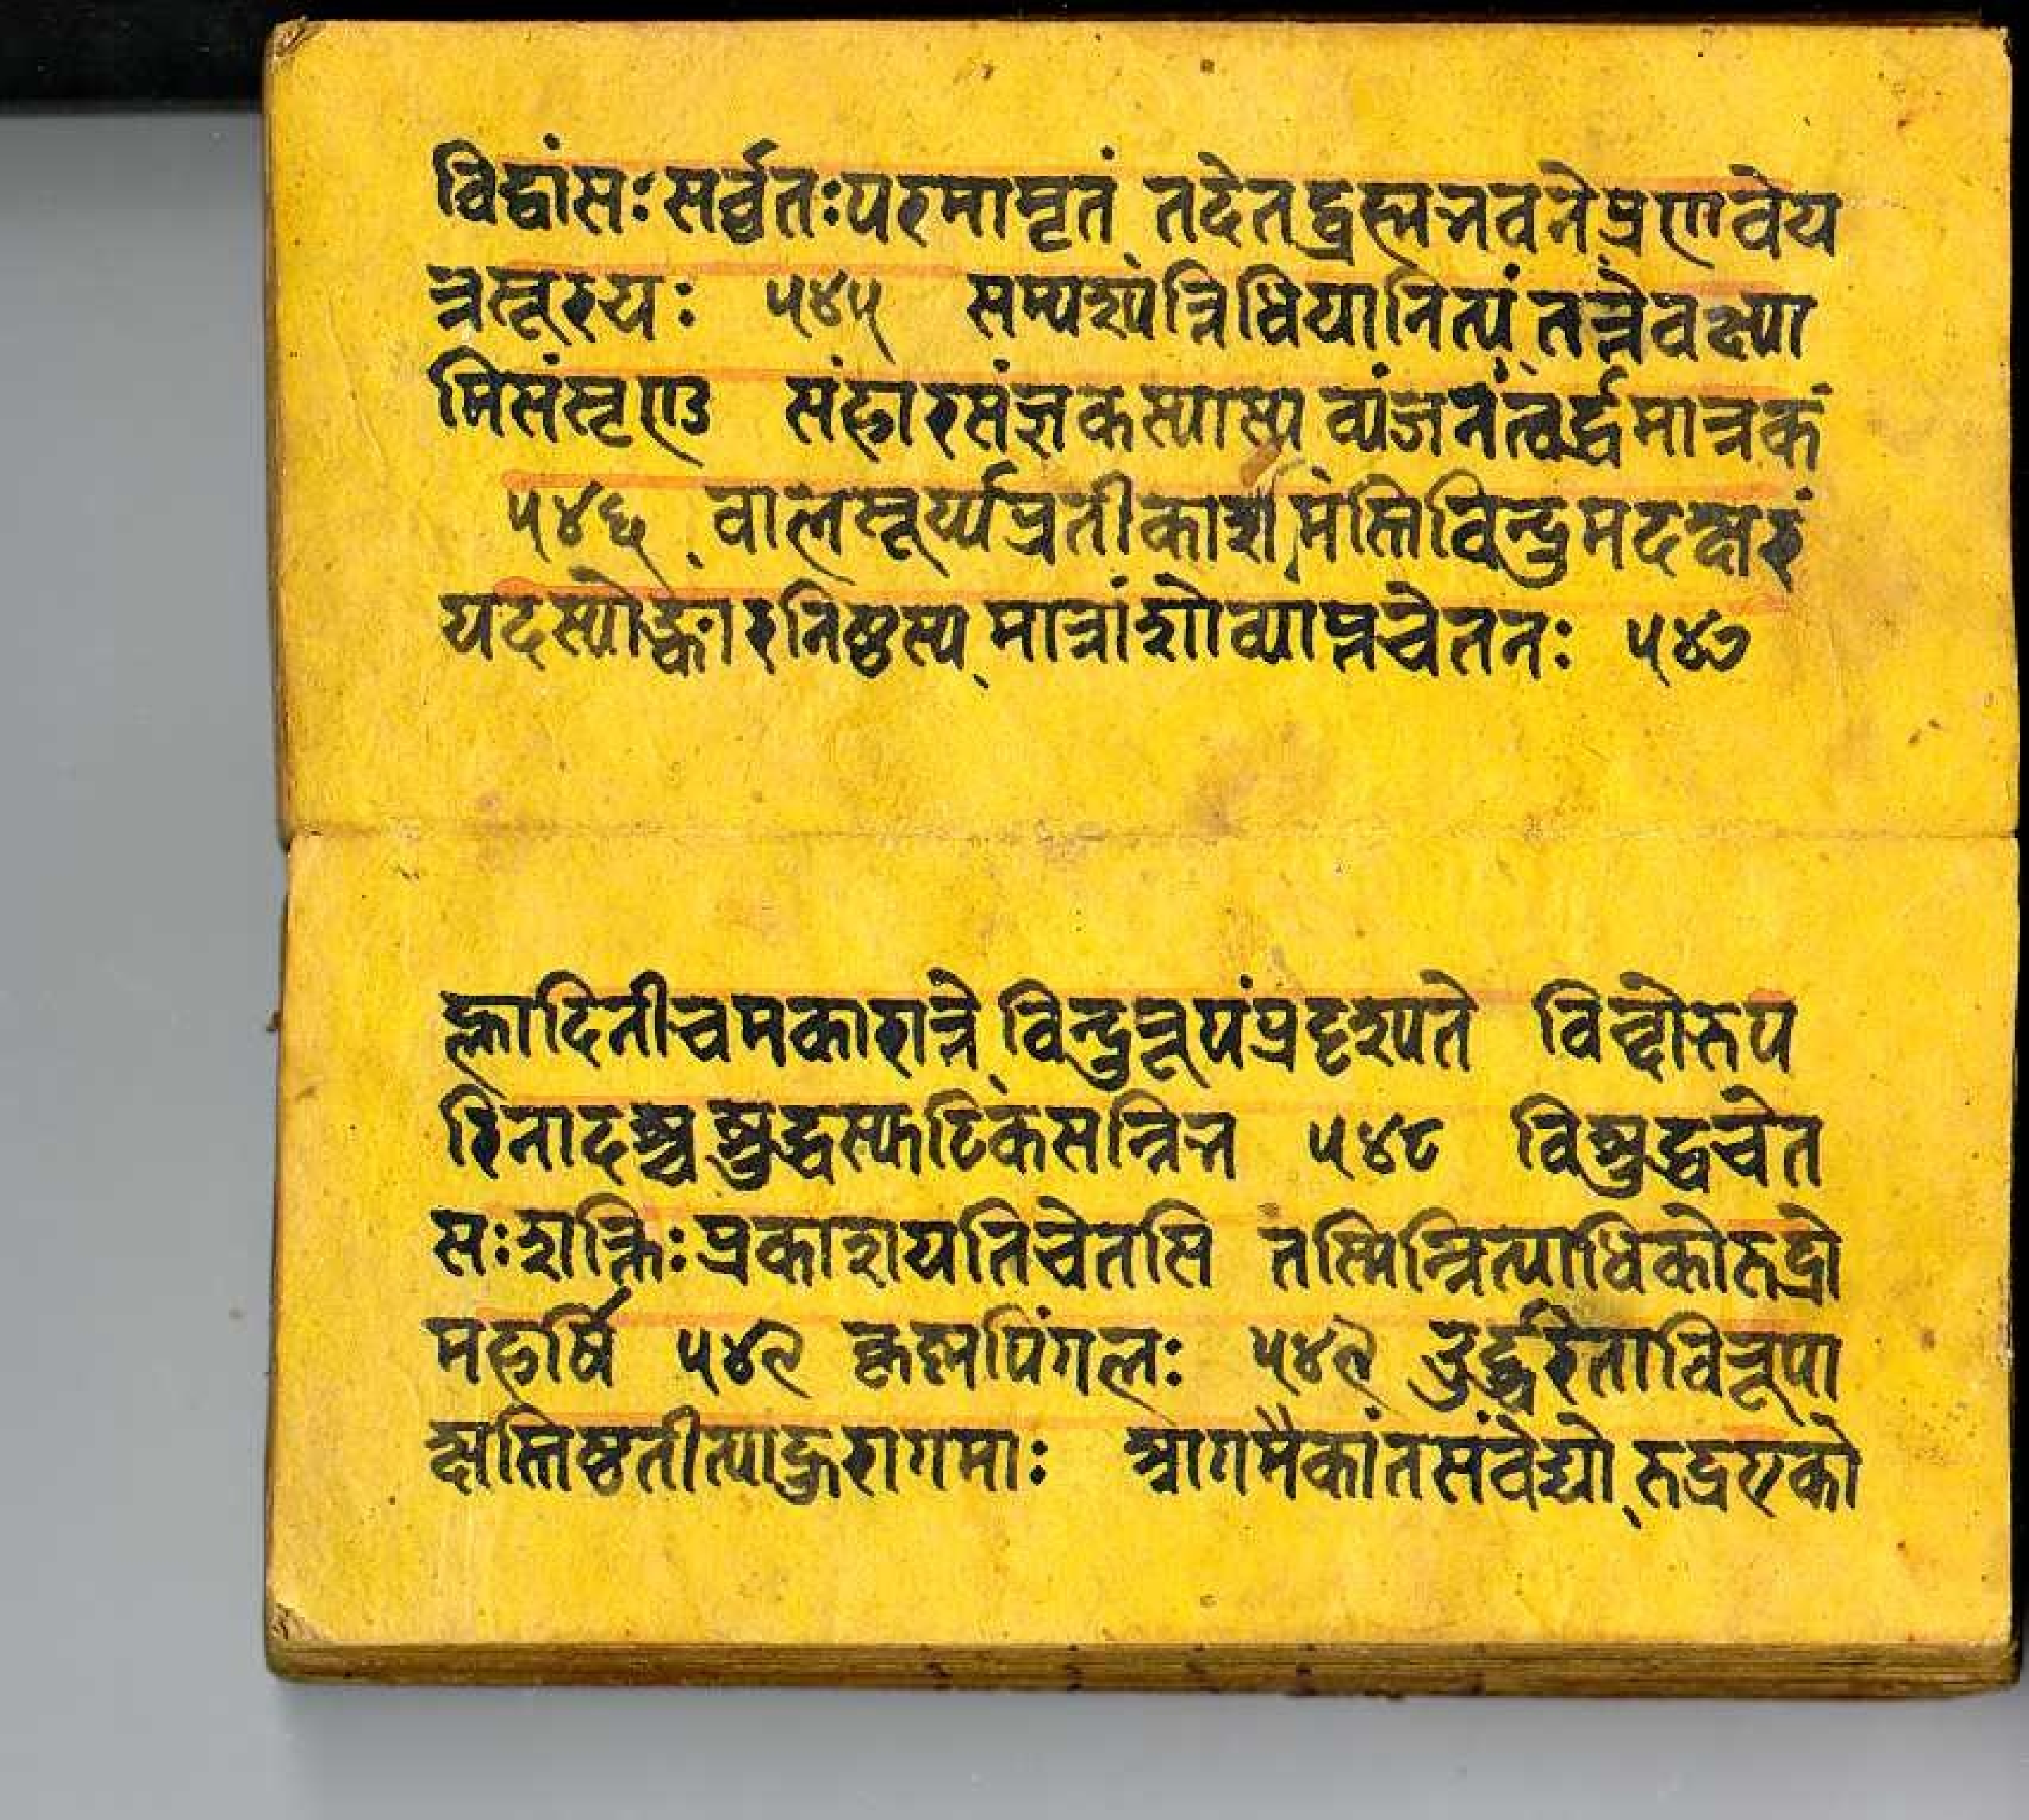 विद्वांसःसर्व्वतःपरमामृतं तदेतद्ब्रह्मभवनेप्रणवेय
त्रसूरयः ५४५ सम्पश्यंत्रिधियानित्यं तत्तेवक्ष्या
मिसंसृणु संहारसंज्ञकस्यास्य व्यंजनंत्वर्द्धमात्रकं
५४६ वालसूर्य्यप्रतीकाशमंत्तिविन्दुमदक्षरं
यदस्योङ्कारनिष्ठस्य मात्रांशोव्याप्तचेतनः ५४७
ह्लादिनीचमकारान्ते विन्दुरूपंप्रदृश्यते विन्दोरुप
रिनादश्च शुद्धस्फटिकसन्निभ ५४८ विशुद्धचेत
सःशक्तिःप्रकाशयतिचेतसि तस्मिन्नित्याधिकोरुद्रो
महर्षि ५४९ कृष्णपिंगलः ५४९ उर्द्ध्वरेताविरूपा
क्षस्तिष्ठतीत्याहुरागमाः आगमैकांतसंवेद्यो रुद्रएको